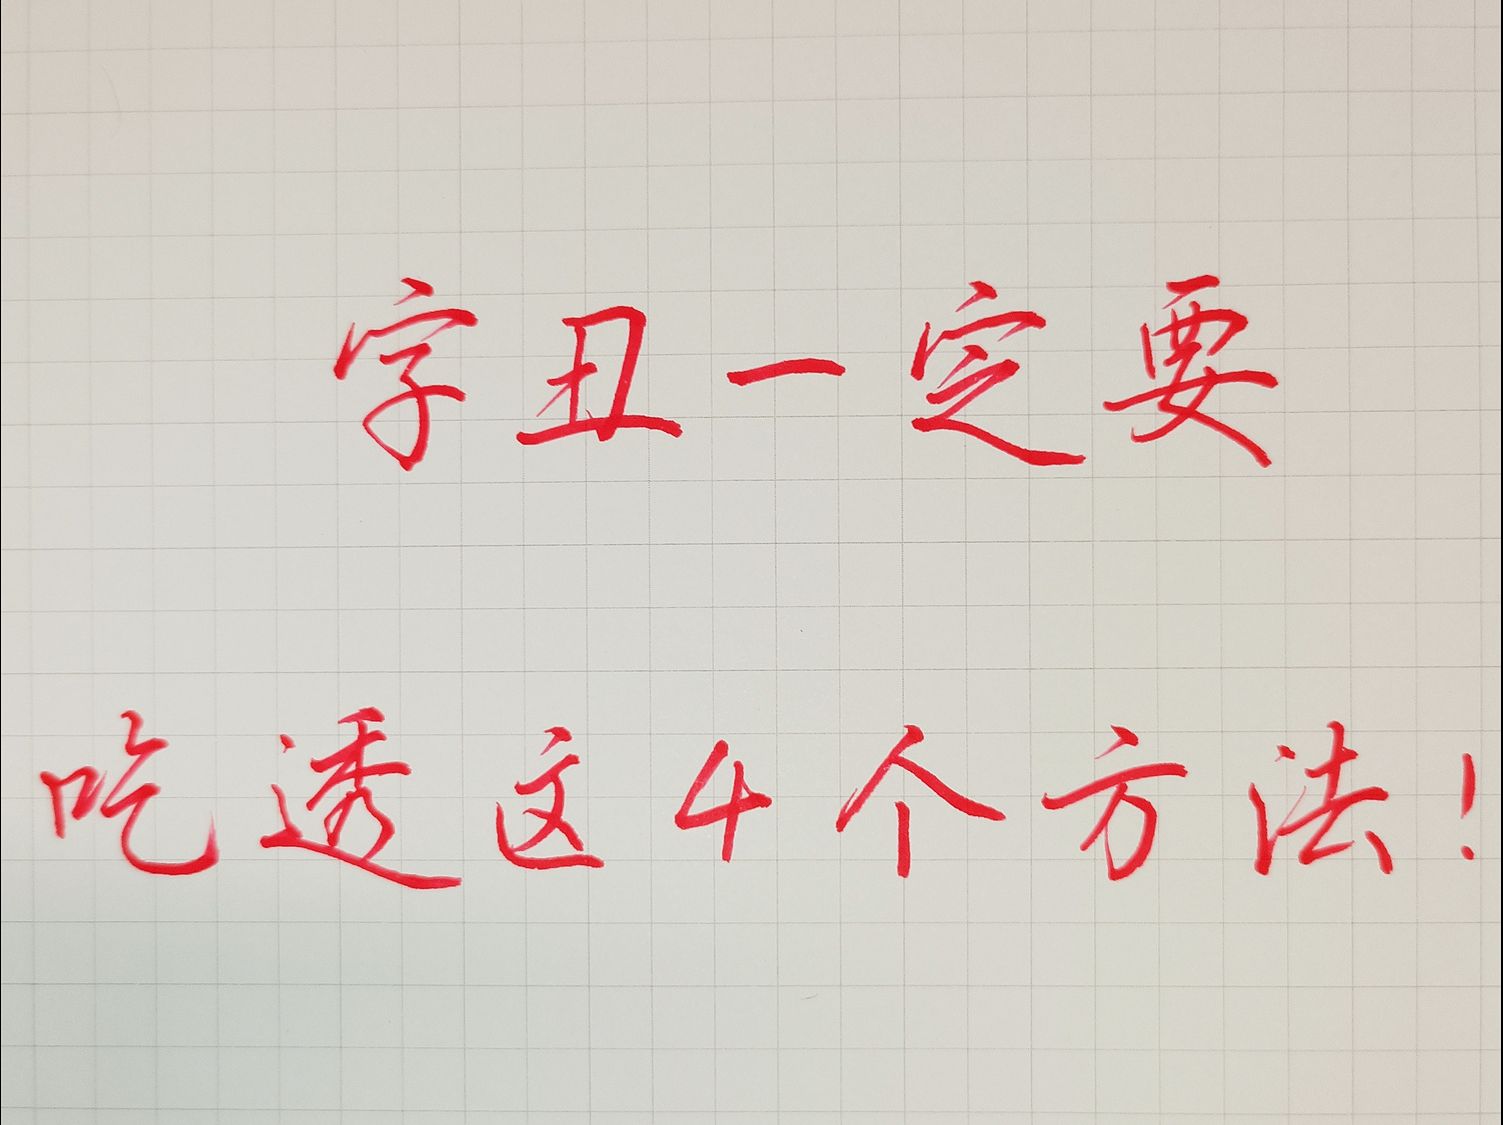 字丑一定要
吃透这4个方法！